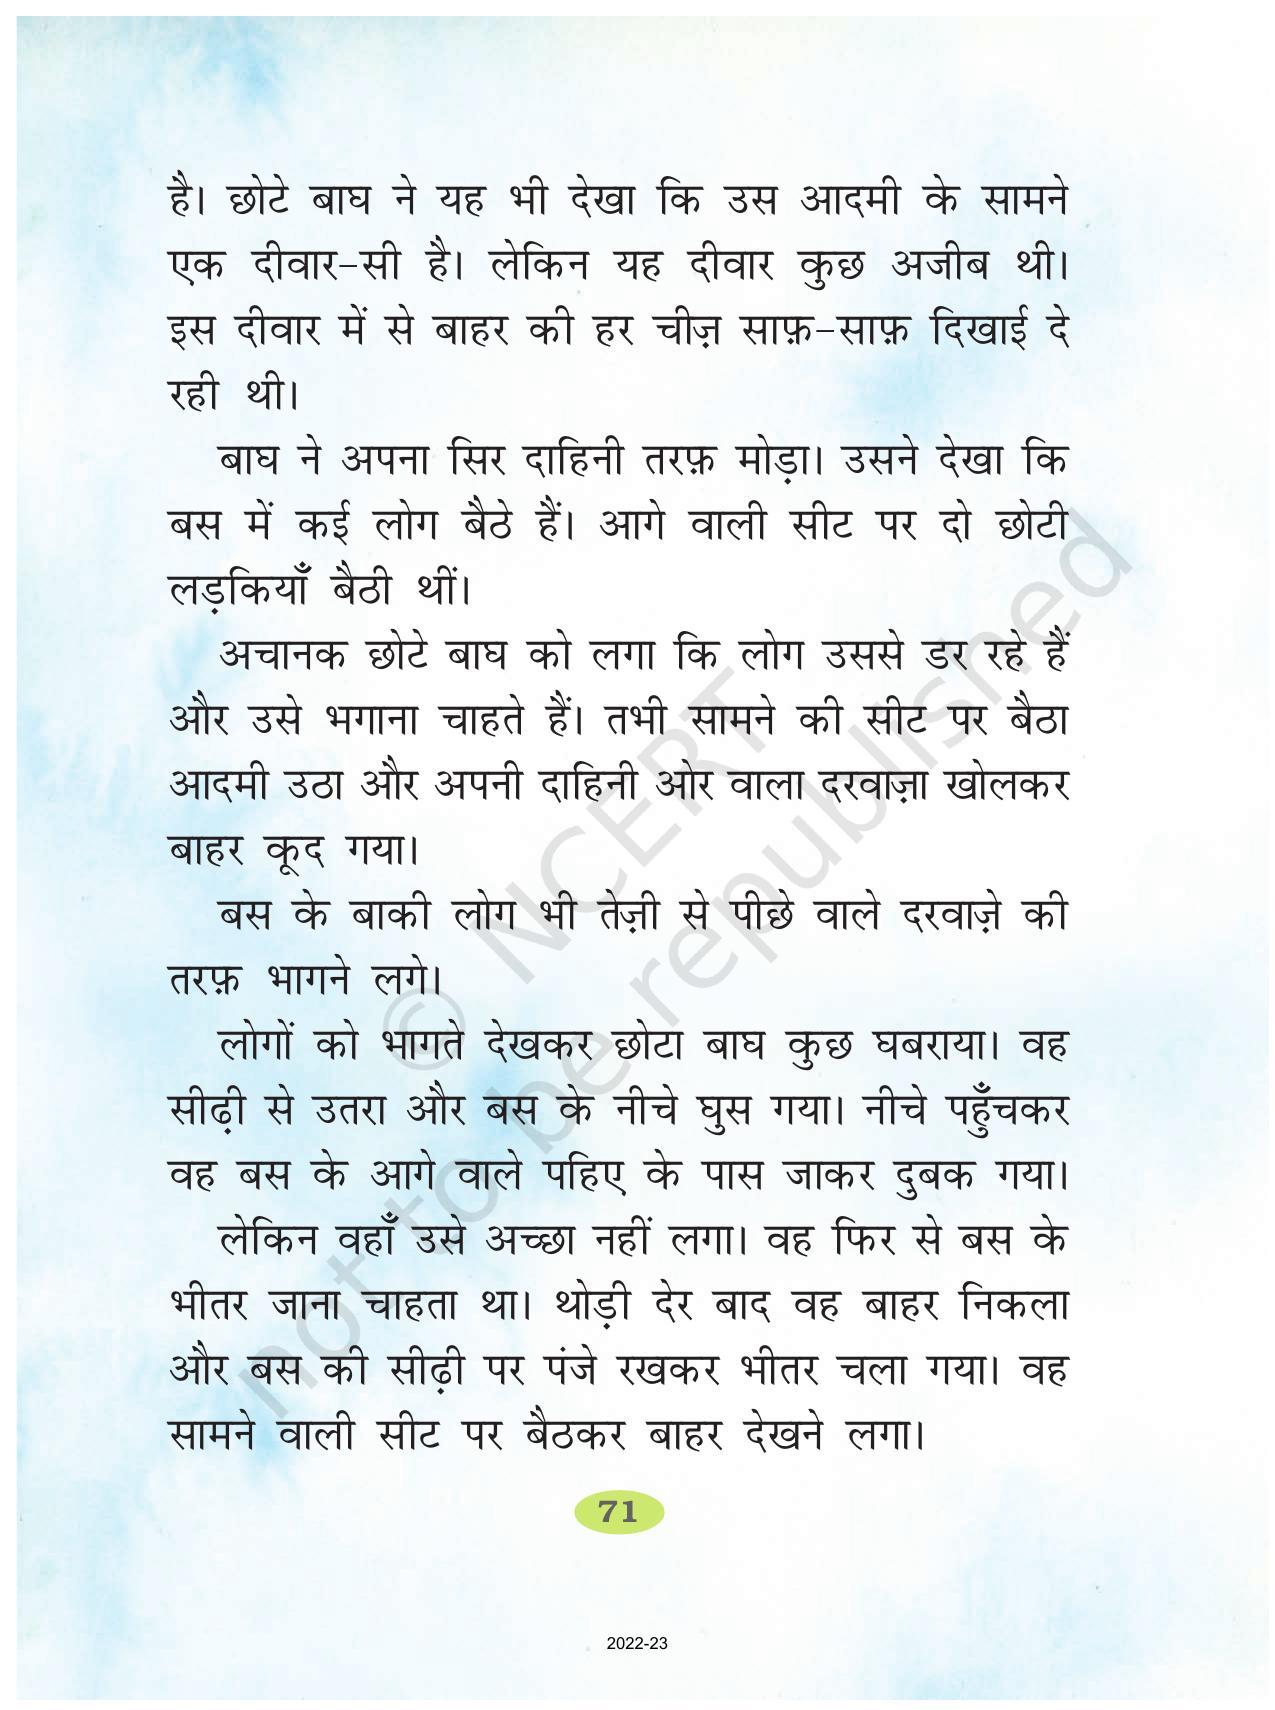 है। छोटे बाघ ने यह भी देखा कि उस आदमी के सामने
एक दीवार-सी है। लेकिन यह दीवार कुछ अजीब थी।
इस दीवार में से बाहर की हर चीज़ साफ़-साफ़ दिखाई दे
रही थी।
बाघ ने अपना सिर दाहिनी तरफ़ मोड़ा। उसने देखा कि
बस में कई लोग बैठे हैं। आगे वाली सीट पर दो छोटी
लड़कियाँ बैठी थीं।
अचानक छोटे बाघ को लगा कि लोग उससे डर रहे हैं
और उसे भगाना चाहते हैं। तभी सामने की सीट पर बैठा
आदमी उठा और अपनी दाहिनी ओर वाला दरवाज़ा खोलकर
बाहर कूद गया।
बस के बाकी लोग भी तेज़ी से पीछे वाले दरवाज़े की
तरफ़ भागने लगे।
लोगों को भागते देखकर छोटा बाघ कुछ घबराया। वह
सीढ़ी से उतरा और बस के नीचे घुस गया। नीचे पहुँचकर
वह बस के आगे वाले पहिए के पास जाकर दुबक गया।
लेकिन वहाँ उसे अच्छा नहीं लगा। वह फिर से बस के
भीतर जाना चाहता था। थोड़ी देर बाद वह बाहर निकला
और बस की सीढ़ी पर पंजे रखकर भीतर चला गया। वह
सामने वाली सीट पर बैठकर बाहर देखने लगा।
© NCERT
not to be republished
71
2022-23